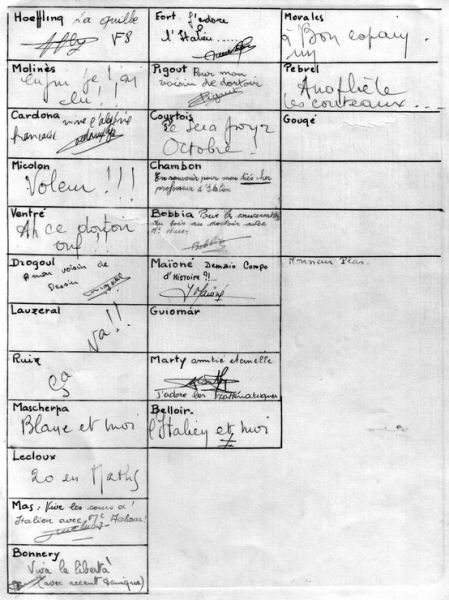 Hoeffling La quille
V S
Molinès
enfin je l'ai
eu ! !
Cardona vive l'algérie
française
Micolon
Voleur !!!
Ventré
Ah ce dortoir
ouf !
Drogoul
A mon voisin de
Dessin
Lauzeral
Va !!
Ruiz
Ça
Mascherpa
Blaye et moi
Lecloux
20 en Maths
Mas : Vive les cours d'
Italien avec
Bonnery
Viva la libertà
(avec accent tonique)
Fort J'adore
l'Italien.....
Pigout Pour mon
voisin de dortoir
Pigout
Courtois
Ce sera pour
Octobre
Chambon
En souvenir pour mon très cher
professeur d'Italien
Bobbia Pour les
au dortoir avec
Bobbia
Maïoné Demain Compo
d'Histoire ?!..
Maïoné
Guiomar
Marty amitié éternelle
J'adore les mathématiques
Belloir.
l'Italien et moi
Morales
à Bon copain
Pebrel
les couteaux...
Gougé
Monsieur